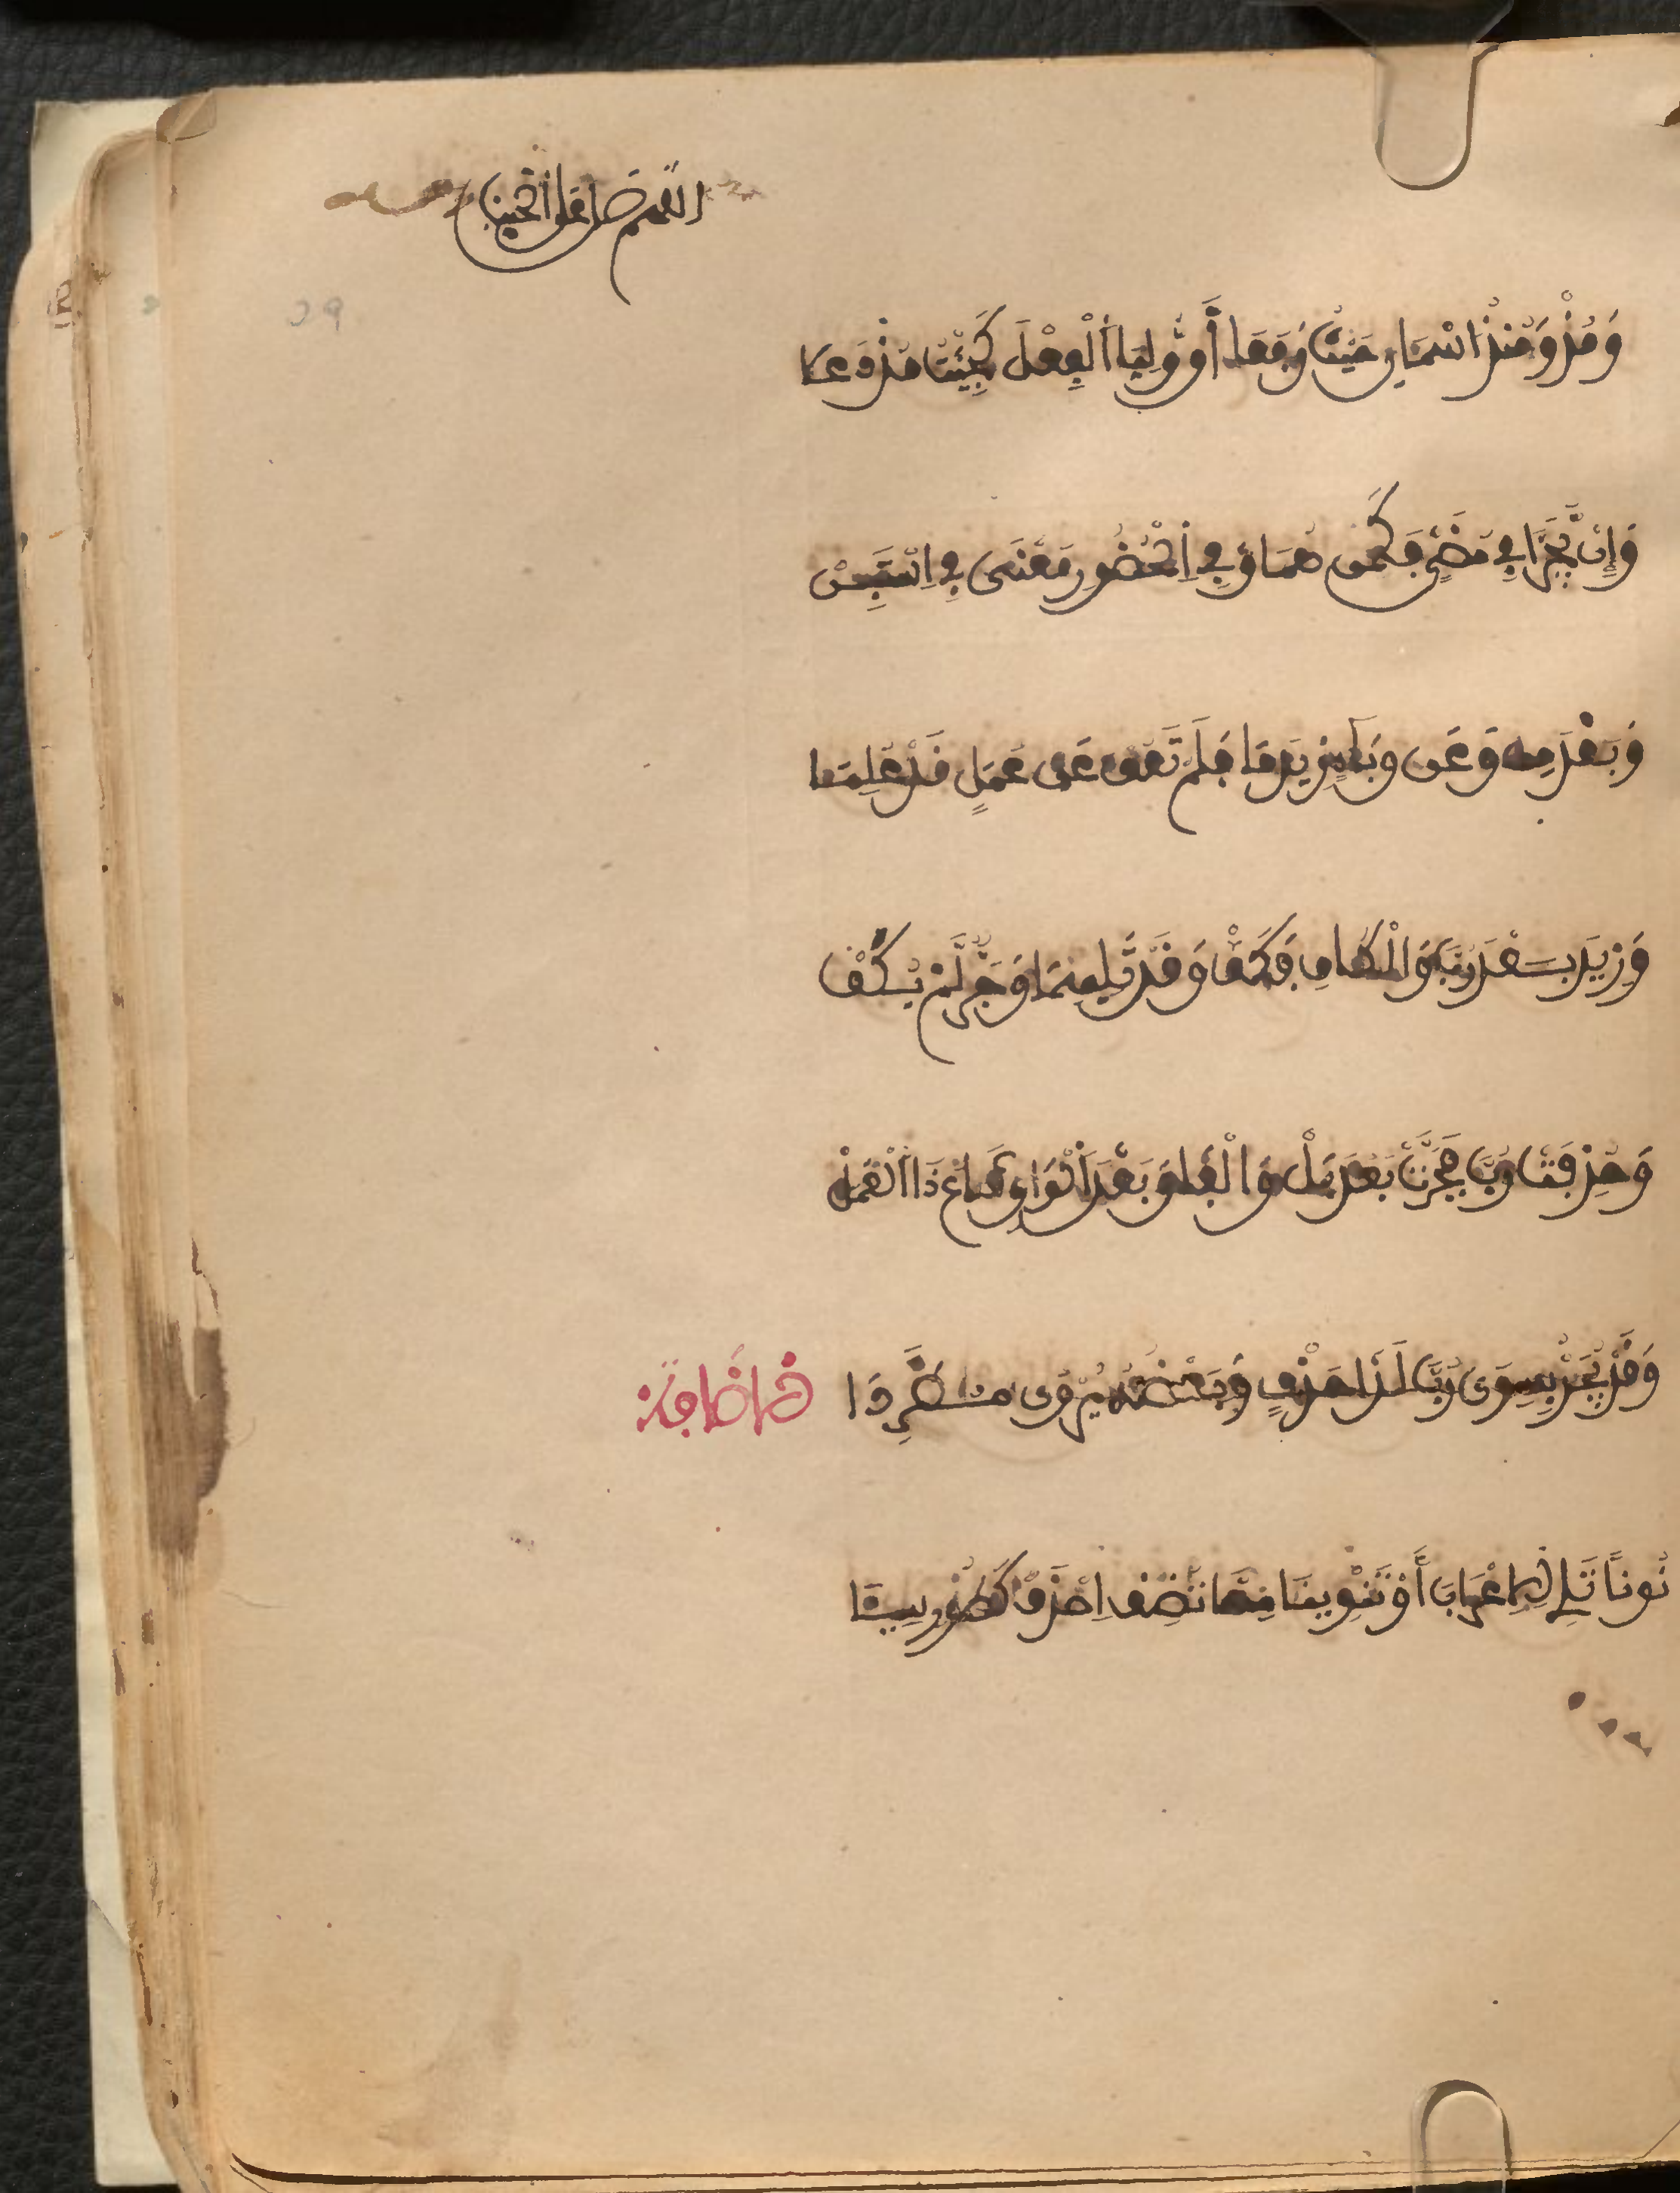 اللهم صل على الحبيب
وَمُذْ وَمُنْذُ اسْمَانِ حَيْثُ رَفَعَا أَوْ أُولِيَا الْفِعْلَ كَجِئْتُ مُذْ دَعَا
وَإِن يَّجُرَّا فِي مُضِيٍّ فَكَمِن هُمَا وَفِي الْحُضُورِ مَعْنَى فِي اسْتَبِنْ
وَبَعْدَ مِن وَعَن وَبَاءٍ زِيدَ مَا فَلَمْ تَعُق عَن عَمَلٍ قَدْ عُلِمَا
وَزِيدَ بَعْدَ رُبَّ وَالْكَافِ فَكَفْ وَقَد تَّلِيهِمَا وَجَرٌّ لَّمْ يُكَفْ
وَحُذِفَتْ رُبَّ فَجَرَّتْ بَعْدَ بَلْ وَالْفَا وَبَعْدَ الْوَاوِ شَاعَ ذَا الْعَمَلْ
وَقَدْ يُجَرُّ بِسِوَى رُبَّ لَدَا حَذْفٍ وَبَعْضُهُ يُرَى مُطَّرِدَا
الإضافة
نُوناً تَلِي الإِعْرَابَ أَوْ تَنْوِينَا مِمَّا تُضِف احْذِفْ كَطُورِ سِينَا